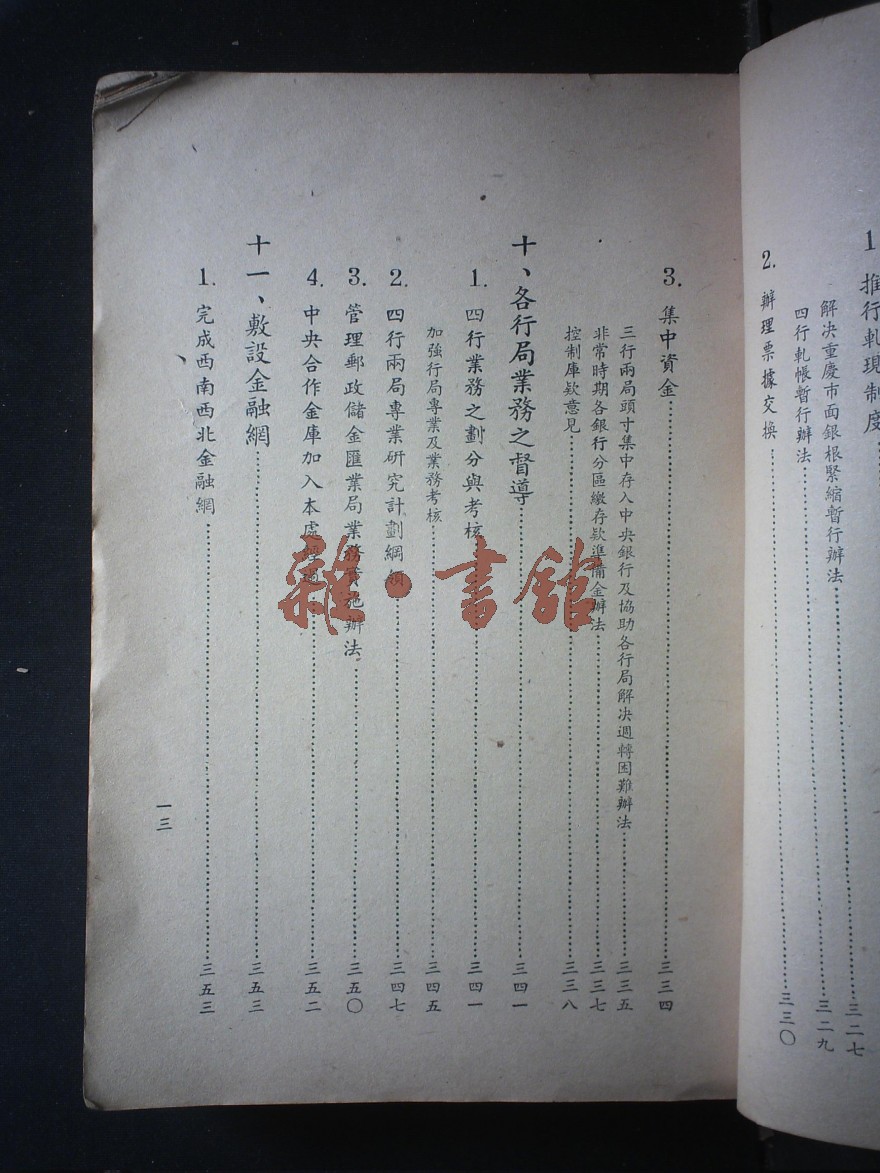 1 推行軋現制度
解决重慶市面銀根緊縮暫行辦法……三二七
四行軋帳暫行辦法……三二九
2. 辦理票據交換……三三〇
3. 集中資金……三三四
三行兩局頭寸集中存入中央銀行及協助各行局解决週轉困難辦法……三三五
非常時期各銀行分區繳存款準備金辦法……三三七
控制庫欵意見……三三八
十、各行局業務之督導……三四一
1. 四行業務之劃分與考核……三四一
加強行局專業及業務考核……三四五
2. 四行兩局專業研究計劃綱領……三四七
3. 管理郵政儲金匯業局業務實施辦法……三五〇
4. 中央合作金庫加入本處經過……三五二
十一、敷設金融網……三五三
1. 完成西南西北金融網……三五三
一三
雜·書館